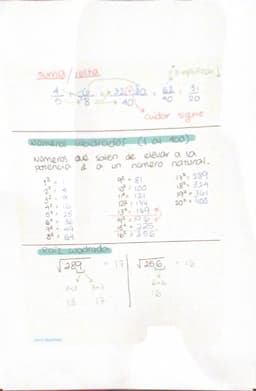 suma / resta
simplificar ↓
4/5 + 6/8 = 32+30/40 = 62/40 = 31/20
cuidar signo
Números cuadrados (1 al 400)
Números que salen de elevar a la
potencia 2 a un número natural.
1² = 1
2² = 4
3² = 9
4² = 16
5² = 25
6² = 36
7² = 49
8² = 64
9² = 81
10² = 100
11² = 121
12² = 144
13² = 169
14² = 196
15² = 225
16² = 256
17² = 289
18² = 324
19² = 361
20² = 400
Raíz cuadrada
√289 = 17
√256 = 16